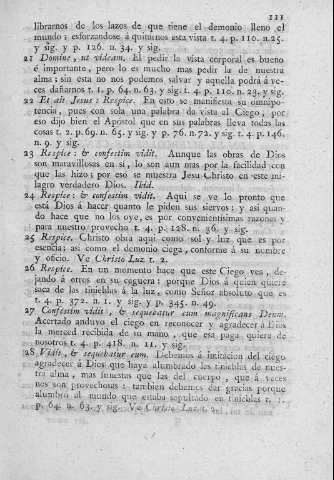 111
librarnos de los lazos de que tiene el demonio lleno el
mundo; esforzandose à quitarnos esta vista t. 4. p. 110. n. 25.
y sig. y p. 126. n. 34. y sig.
21 Domine, ut videam. El pedir la vista corporal es bueno
é importante, pero lo es mucho mas pedir la de nuestra
alma; sin esta no nos podemos salvar y aquella podrá à ve-
ces dañarnos t. 1. p. 64. n. 63. y sig. t. 4. p. 110. n. 23. y sig.
22 Et ait Jesus: Respice. En esto se manifiesta su omnipo-
tencia, pues con sola una palabra da vista al Ciego; por
eso dijo bien el Apóstol que en sus palabras lleva todas las
cosas t. 2. p. 69. n. 65. y sig. y p. 76. n. 72. y sig. t. 4. p. 146.
n. 9. y sig.
23 Respice: & confestim vidit. Aunque las obras de Dios
son maravillosas en sí, lo son aun mas por la facilidad con
que las hizo; por eso se muestra Jesu Christo en este mi-
lagro verdadero Dios. Ibid.
24 Respice: & confestim vidit. Aqui se ve lo pronto que
está Dios à hacer quanto le piden sus siervos; y asi quan-
do hace que no los oye, es por convenientisimas razones y
para nuestro provecho t. 4. p. 128. n. 36. y sig.
25 Respice. Christo obra aqui como sol y luz que es por
esencia; asi como el demonio ciega, conforme à su nombre
y oficio. Ve Christo Luz t. 2.
26 Respice. En un momento hace que este Ciego vea, de-
jando à otros en su ceguera; porque Dios à quien quiere
saca de las tinieblas à la luz, como Señor absoluto que es
t. 4. p. 372. n. 1. y sig. y p. 345. n. 49.
27 Confestim vidit, & sequebatur eum magnificans Deum.
Acertado anduvo el ciego en reconocer y agradecer à Dios
la merced recibida de su mano, que esa paga quiere de
nosotros t. 4. p. 418. n. 11. y sig.
28 Vidit, & sequebatur eum. Debemos à imitacion del ciego
agradecer à Dios que haya alumbrado las tinieblas de nues-
tra alma, mas funestas que las del cuerpo, que à veces
nos son provechosas: tambien debemos dar gracias porque
alumbró al mundo que estaba sepultado en tinieblas t. 1.
p. 64. n. 63. y sig. Ve Christo Luz t. 2.